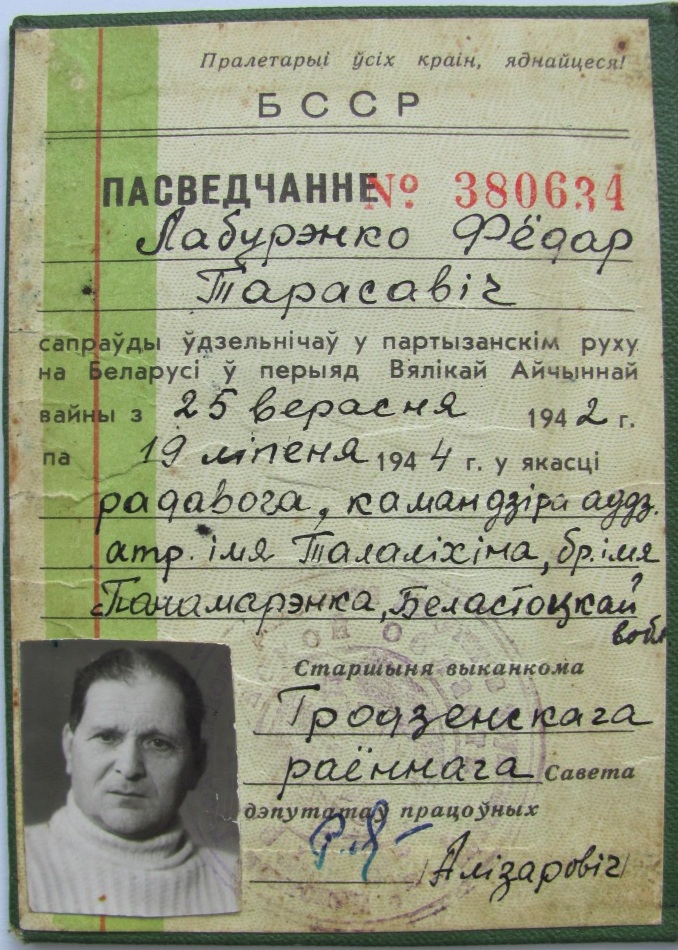 Пралетарыі ўсіх краін, яднайцеся!
БССР
ПАСВЕДЧАННЕ № 380634
Лабурэнко Фёдар
Тарасавіч
сапраўды ўдзельнічаў у партызанскім руху
на Беларусі ў перыяд Вялікай Айчыннай
вайны з 25 верасня 1942 г.
па 19 ліпеня 1944 г. у якасці
радавога, камандзіра аддз.
атр. імя Талаліхіна, бр. імя
Панамарэнка, Беластоцкай
вобл
Старшыня выканкома
Гродзенскага
раённага Савета
дэпутатаў працоўных
/Алізаровіч/